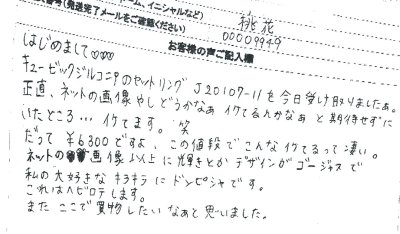 (発送完了メールをご確認ください)
桃花
00009949
お客様の声ご記入欄
はじめまして♡♡♡
キュービックジルコニアのセットリング J20107-11 を今日受け取りましたぁ。
正直、ネットの画像やしどうかなぁ イケてるんかなぁ と期待せずに
いたところ…イケてます。笑
だって ¥6300ですよ、この値段でこんなイケてるって凄い。
ネットの画像以上に輝きとか デザインがゴージャスで
私の大好きなキラキラに ドンピシャです。
これはヘビロテします。
また ここで買物したいなぁと思いました。